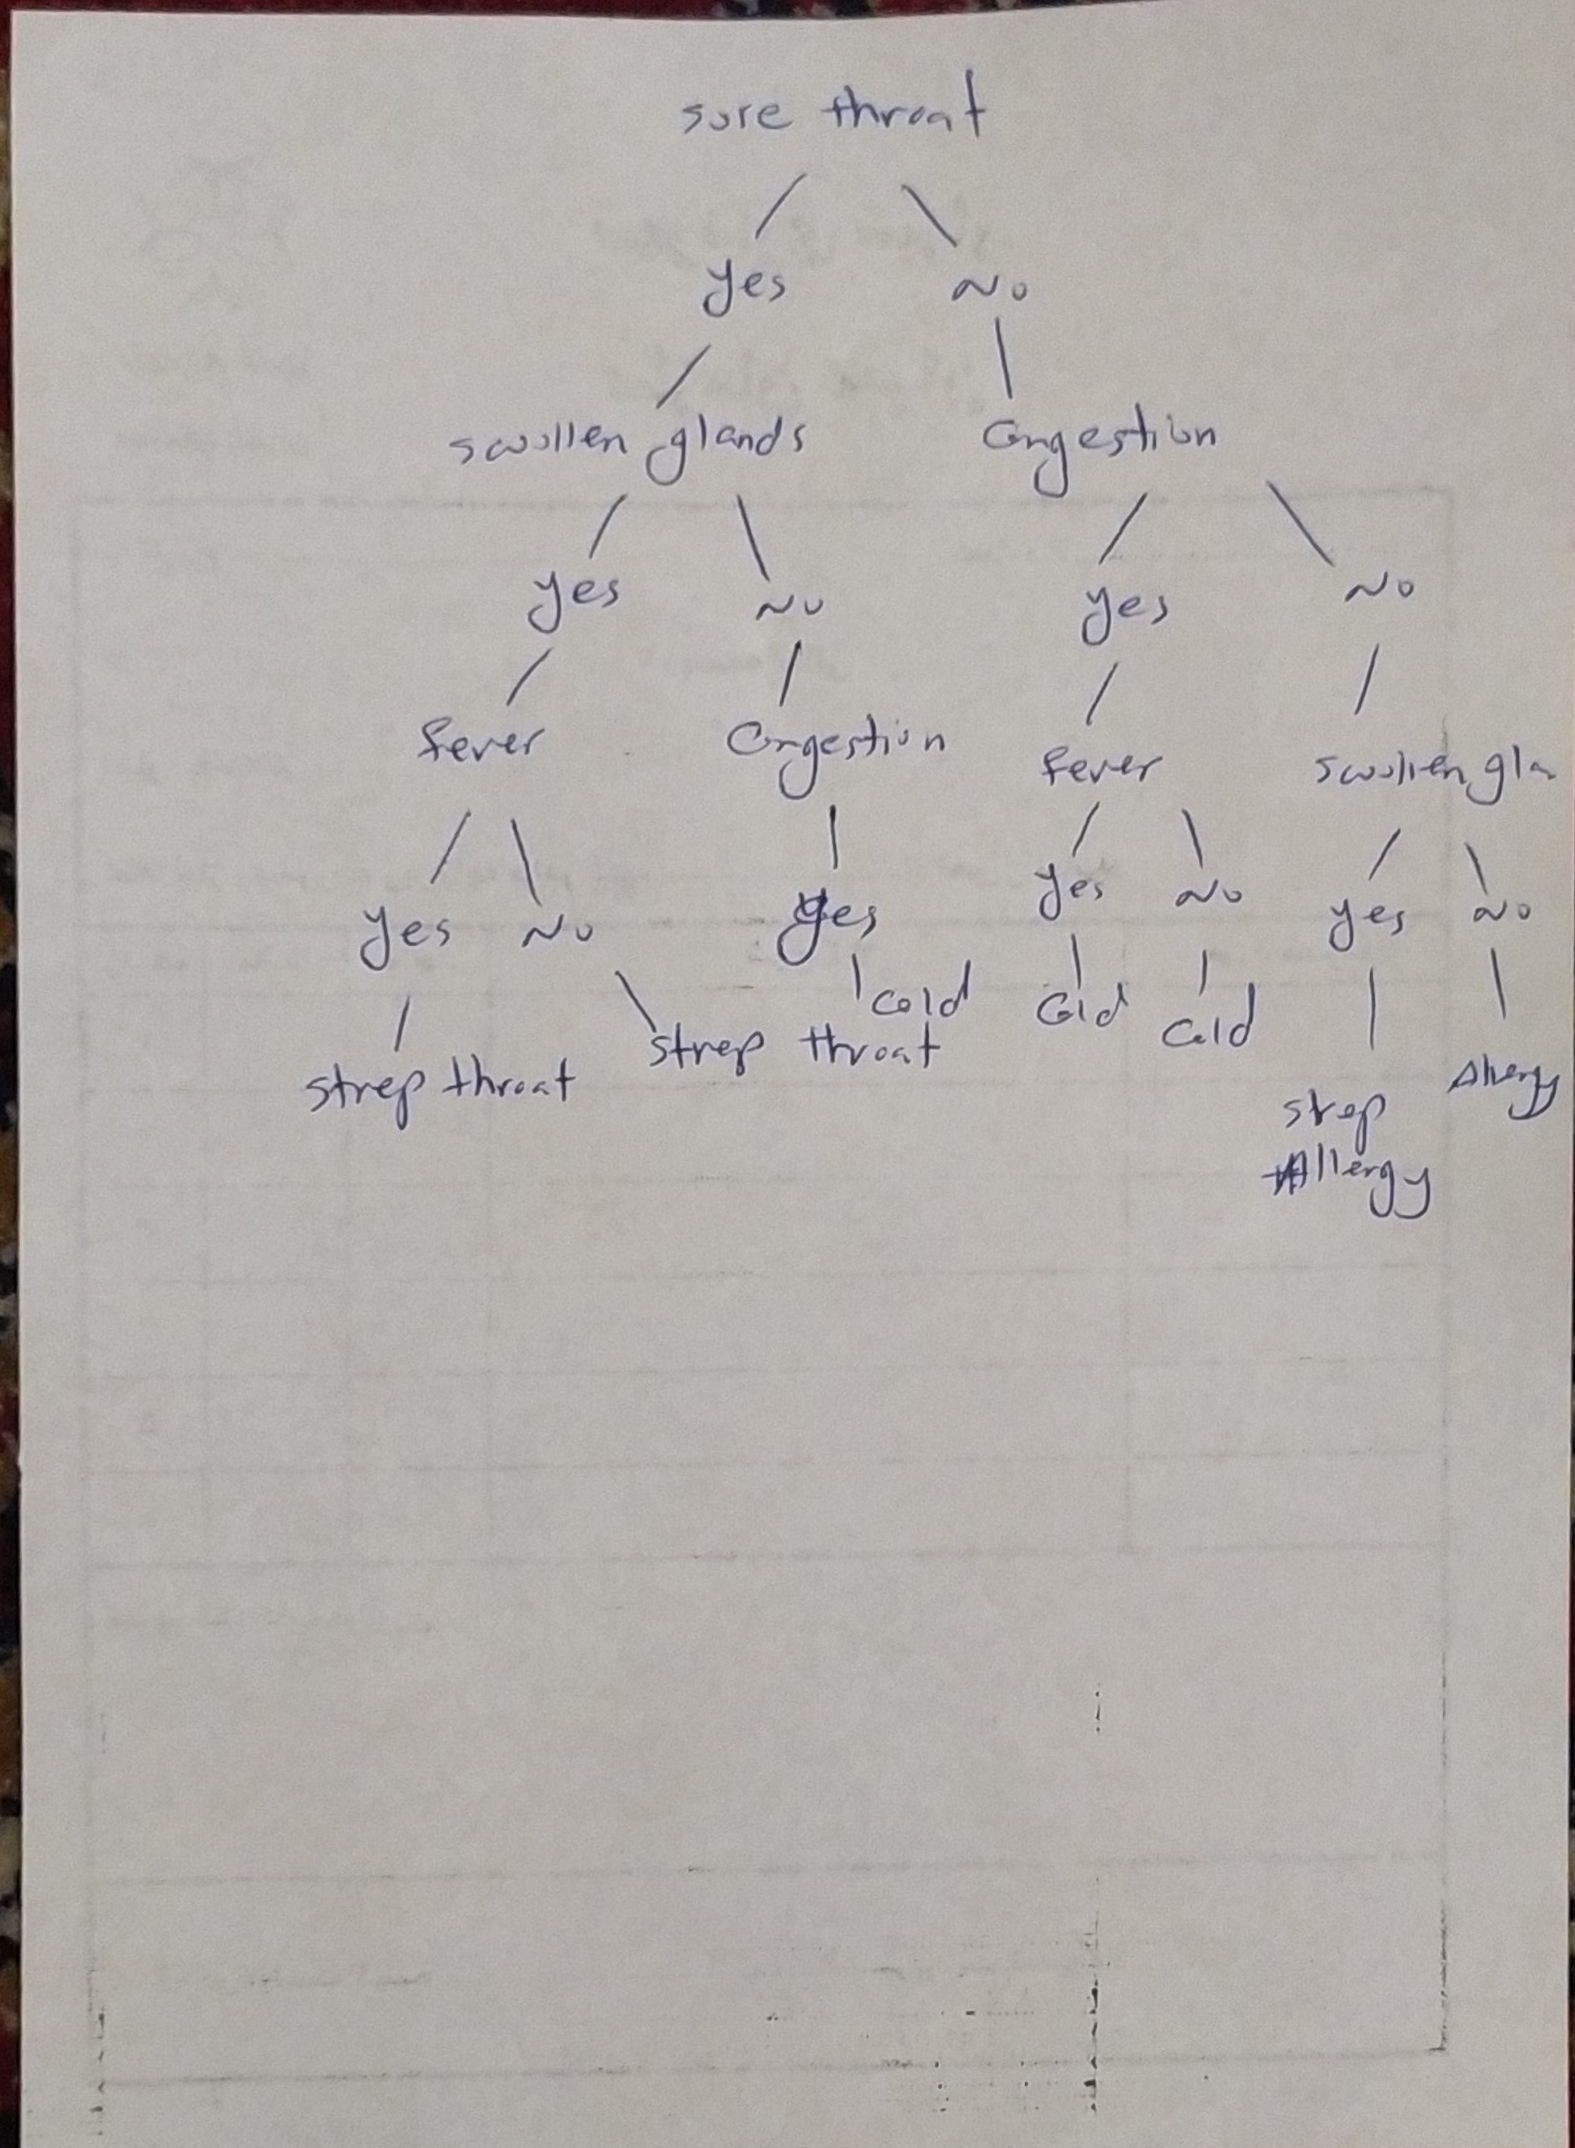 sore throat
yes No
swollen glands Congestion
yes No yes No
fever Congestion fever swollen gla
yes No yes yes No yes No
strep throat strep throat cold Cold Cold strep Allergy
Allergy